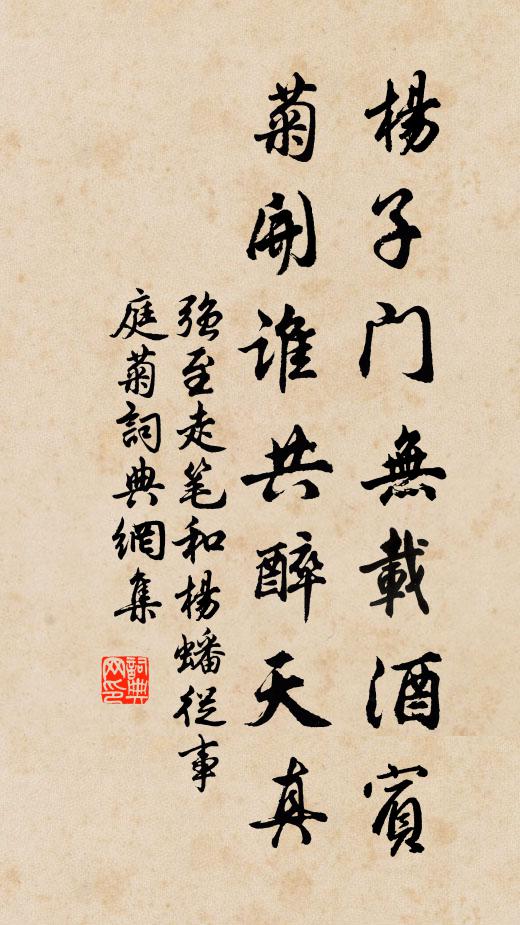 楊子門無載酒賓
菊開誰共醉天真
强至走笔和楊蟠從事
庭菊詞典網集
詞典
网印